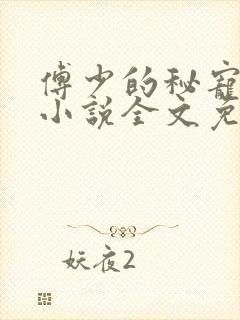 傅少的秘寵
小說全文免
妖夜2